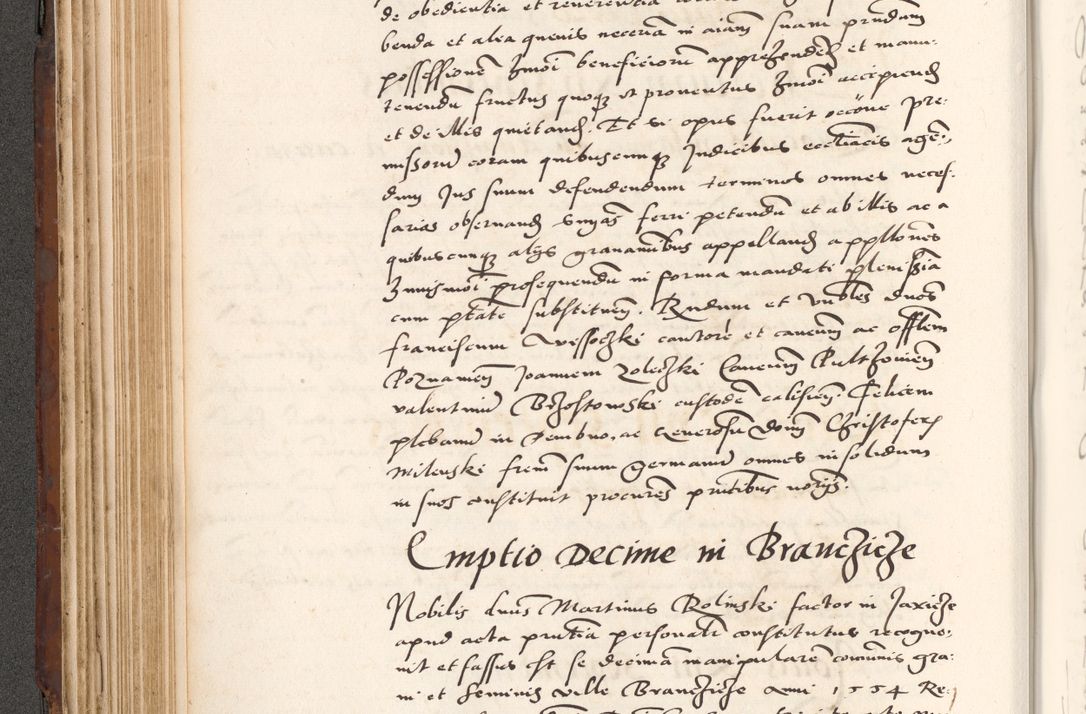 de obedientia et reverentia
benda et alia quevis necessaria in aiam suam prestandum
possessionem hmoi beneficiorum apprehendendi et manu-
tenendum fructus quoque et proventus hmoi accipiendi
et de illis quietandi. Et si opus fuerit occone pre-
missorum coram quibuscunque Iudicibus ecclesiasticis agen-
dum Ius suum defendendum terminos omnes neces-
sarios observandi snias ferri petendum et ab illis ac a
quibuscunque alys gravaminibus appellandi appllones
huiusmoi prosequendum in forma mandati plenissia
cum ptate substituendi. Rndum et vnbles dnos
franciscum Wyssoczki cantore et canonicum ac offlem
Poznaniensem Joannem Zoleczki Canonicum Pulthoviensem
valentinum Brzostowski custodem calisiensem Felicem
plebanum in Dembno, ac Generosum domini Christoferum
Milewski frem suum Germanum omnes in solidum
in suos constituit procures pntibus notys.
Emptio Decime in Branczicze
Nobilis dnus Martinus Rolinski factor in Jaxicze
apud acta pntia personalr constitutus recogno-
vit et fassus est se decimam manipularem communis gra-
ni et seminis ville Branczicze Anni 1554 Re-